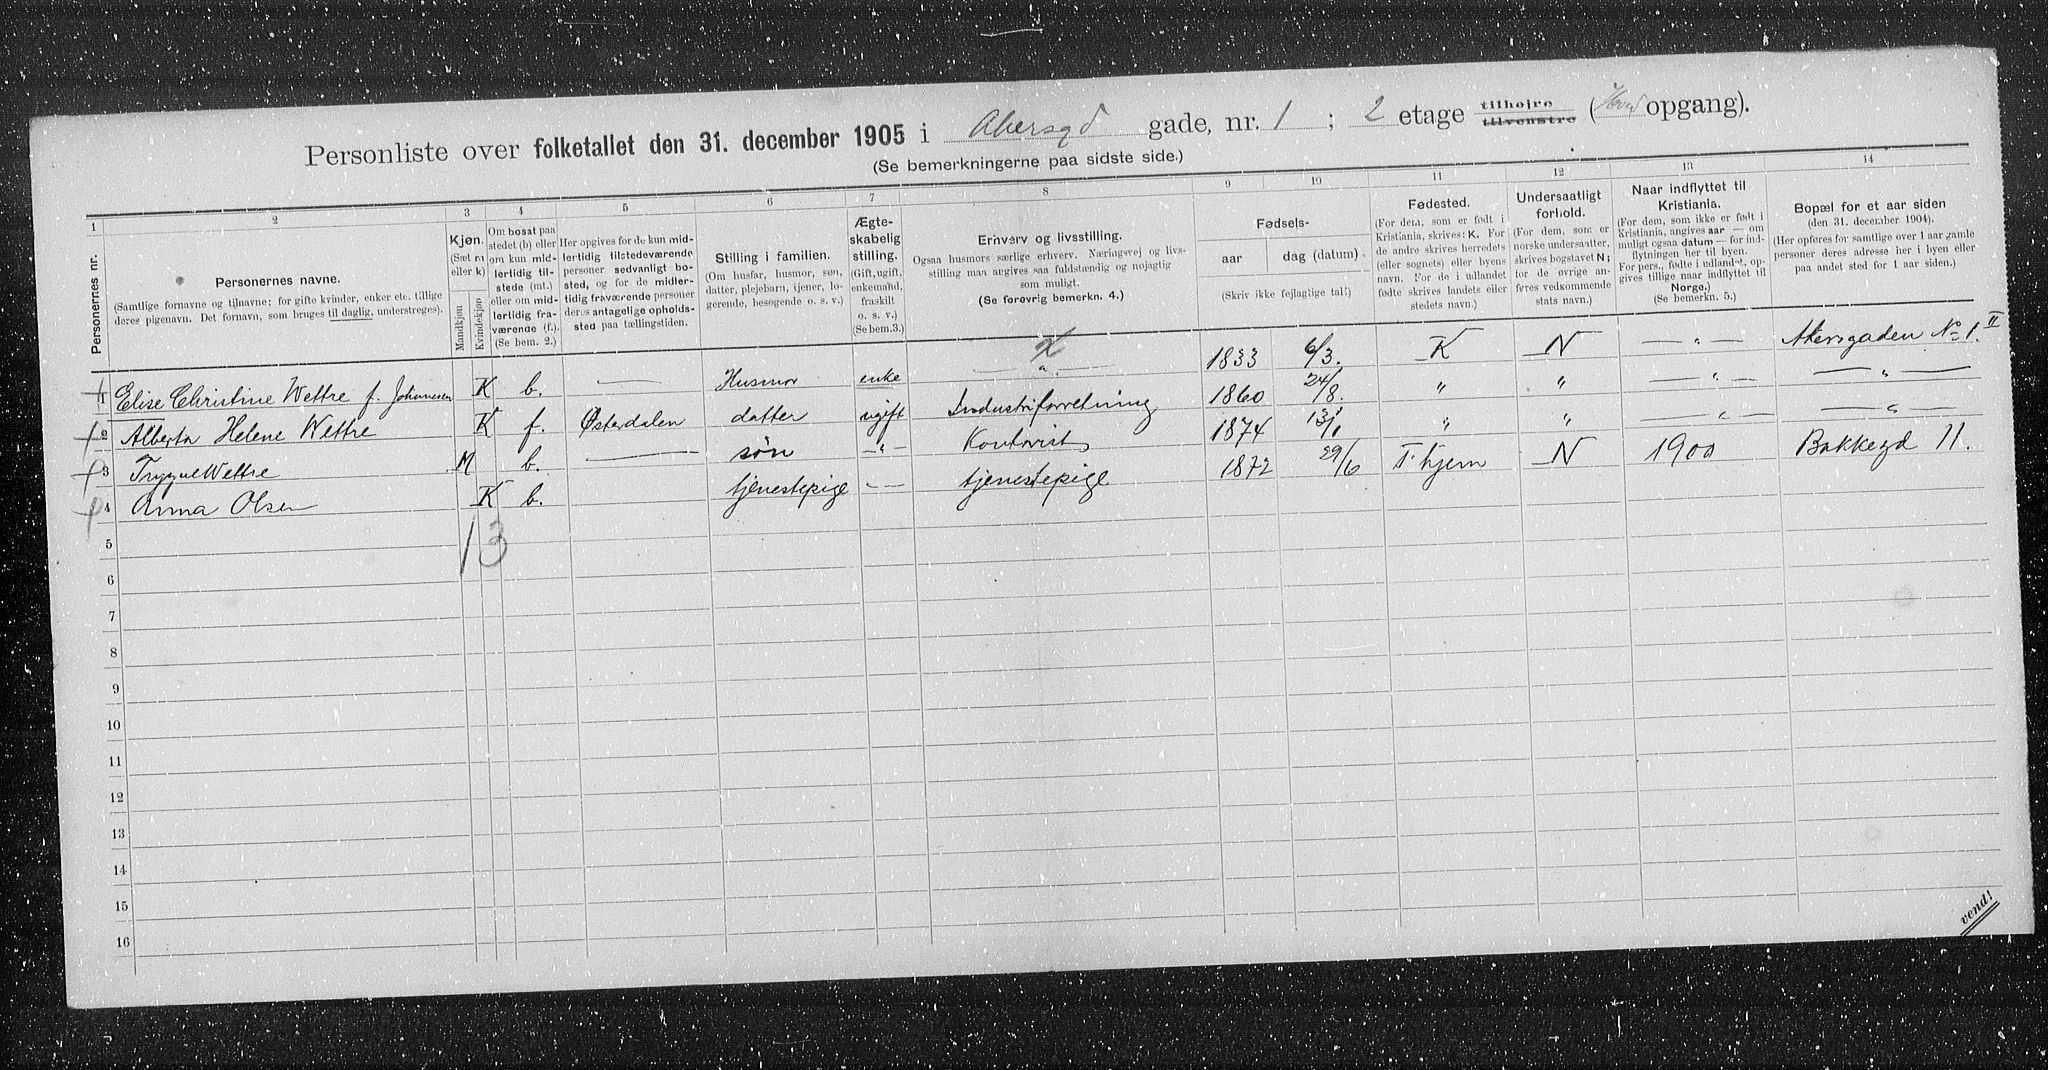 Personliste over folketallet den 31. december 1905 i Akersgd gade, nr. 1 ; 2 etage tilhøjre tilvenstre (Hoved opgang).
(Se bemerkningerne paa sidste side.)
1 2 3 4 5 6 7 8 9 10 11 12 13 14
Personernes nr.
Personernes navne.
(Samtlige fornavne og tilnavne; for gifte kvinder, enker etc. tillige
deres pigenavn. Det fornavn, som bruges til daglig, understreges).
Kjøn.
(Sæt m
eller k)
Mandkjøn
Kvindekjøn
Om bosat paa
stedet (b) eller
om kun mid-
lertidig til-
stede (mt.)
eller om mid-
lertidig fra-
værende (f.).
(Se bem. 2.)
Her opgives for de kun mid-
lertidig tilstedeværende
personer sedvanligt bo-
sted, og for de midler-
tidig fraværende personer
deres antagelige opholds-
sted paa tællingstiden.
Stilling i familien.
(Om husfar, husmor, søn,
datter, plejebarn, tjener, lo-
gerende, besøgende o. s. v.)
Ægte-
skabelig
stilling.
(Gift, ugift,
enkemand,
fraskilt
o. s. v.)
(Se bem. 3.)
Erhverv og livsstilling.
Ogsaa husmors særlige erhverv. Næringsvej og livs-
stilling maa angives saa fuldstændig og nøjagtig
som muligt.
(Se forøvrig bemerkn. 4.)
Fødsels-
aar dag (datum)
(Skriv ikke fejlagtige tal!)
Fødested.
(For dem, som er født i
Kristiania, skrives: K. For
de andre skrives herredets
(eller sognets) eller byens
navn. For de i udlandet
fødte skrives landets eller
stedets navn.)
Undersaatligt
forhold.
(For dem, som er
norske undersaatter,
skrives bogstavet N;
for de øvrige an-
føres vedkommende
stats navn.)
Naar indflyttet til
Kristiania.
(For dem, som ikke er født i
Kristiania, angives aar — om
muligt ogsaa datum — for ind-
flytningen her til byen.
For pers., født i udlandet, op-
gives tillige naar indflyttet til
Norge.)
(Se bemerkn. 5.)
Bopæl for et aar siden
(den 31. december 1904).
(Her opføres for samtlige over 1 aar gamle
personer deres adresse her i byen eller
paa andet sted for 1 aar siden.)
1 Elise Christine Wettre f. Johannesen K b. — Husmor enke — „ — 1833 6/3. K N — „ — Akersgaden No 1. II
2 Alberta Helene Wettre K f. Østerdalen datter ugift Industriforretning 1860 24/8. „ „ — „ — — „ —
3 Trygve Wettre M b. — søn — „ — Kontorist 1874 13/1 „ „ — „ — — „ —
4 Anna Olsen K b. tjenestepige — „ — tjenestepige 1872 29/6 Thjem N 1900 Bakkegd 11.
1 3
5
6
7
8
9
10
11
12
13
14
15
16
vend!